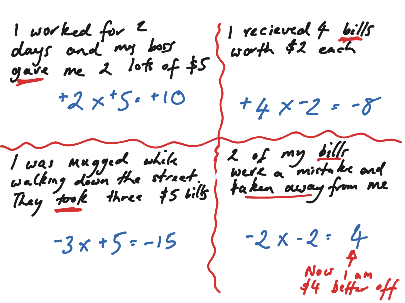 I worked for 2
days and my boss
gave me 2 lots of $5
+2 x +5 = +10
I recieved 4 bills
worth $2 each
+4 x -2 = -8
I was mugged while
walking down the street
They took three $5 bills
-3 x +5 = -15
2 of my bills
were a mistake and
taken away from me
-2 x -2 = 4
Now I am
$4 better off